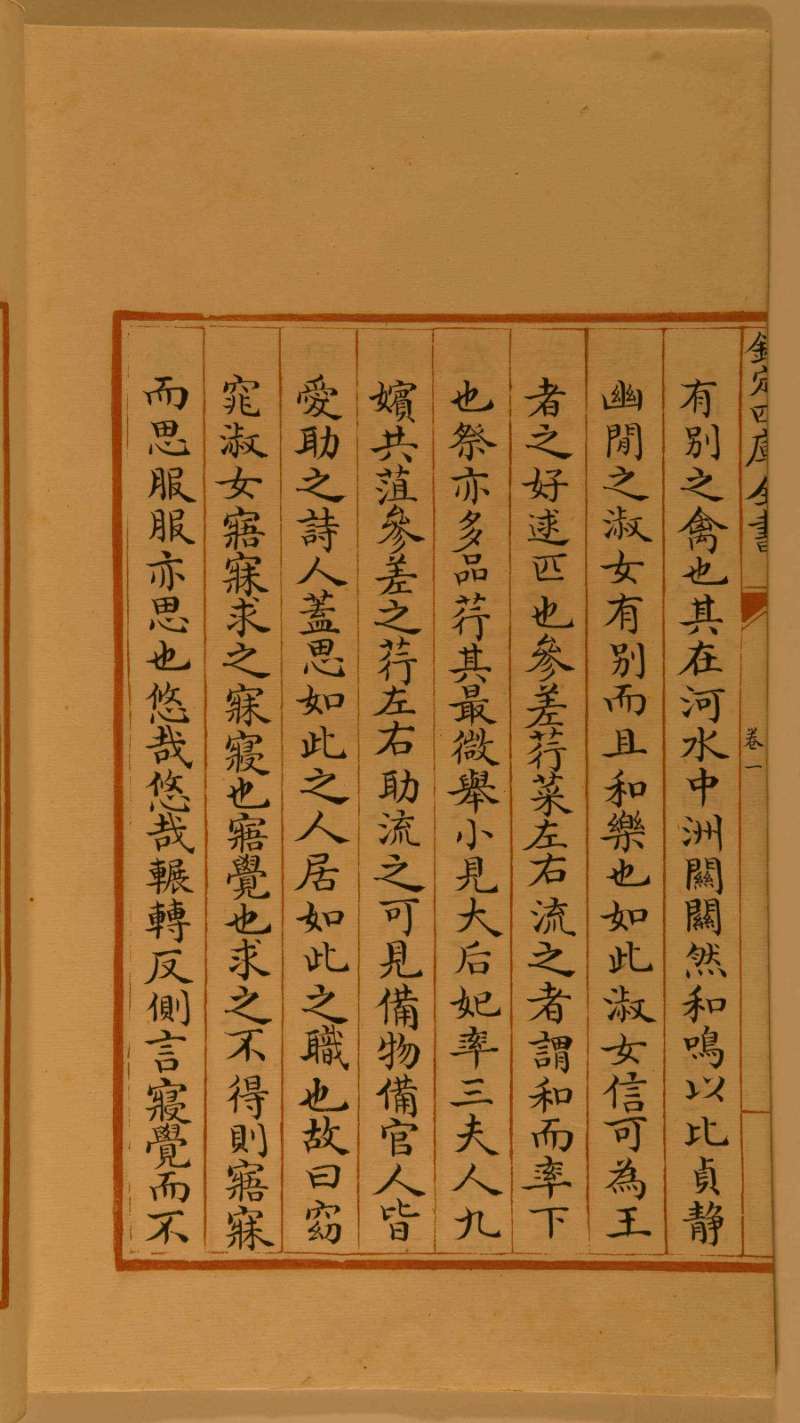 欽定四庫全書
卷一
有別之禽也其在河水中洲關關然和鳴以比貞静
幽閒之淑女有别而且和樂也如此淑女信可為王
者之好逑匹也參差荇菜左右流之者謂和而率下
也祭亦多品荇其最微舉小見大后妃率三夫人九
嬪共菹參差之荇左右助流之可見備物備官人皆
愛助之詩人蓋思如此之人居如此之職也故曰窈
窕淑女寤寐求之寐寢也寤覺也求之不得則寤寐
而思服服亦思也悠哉悠哉輾轉反側言寢覺而不